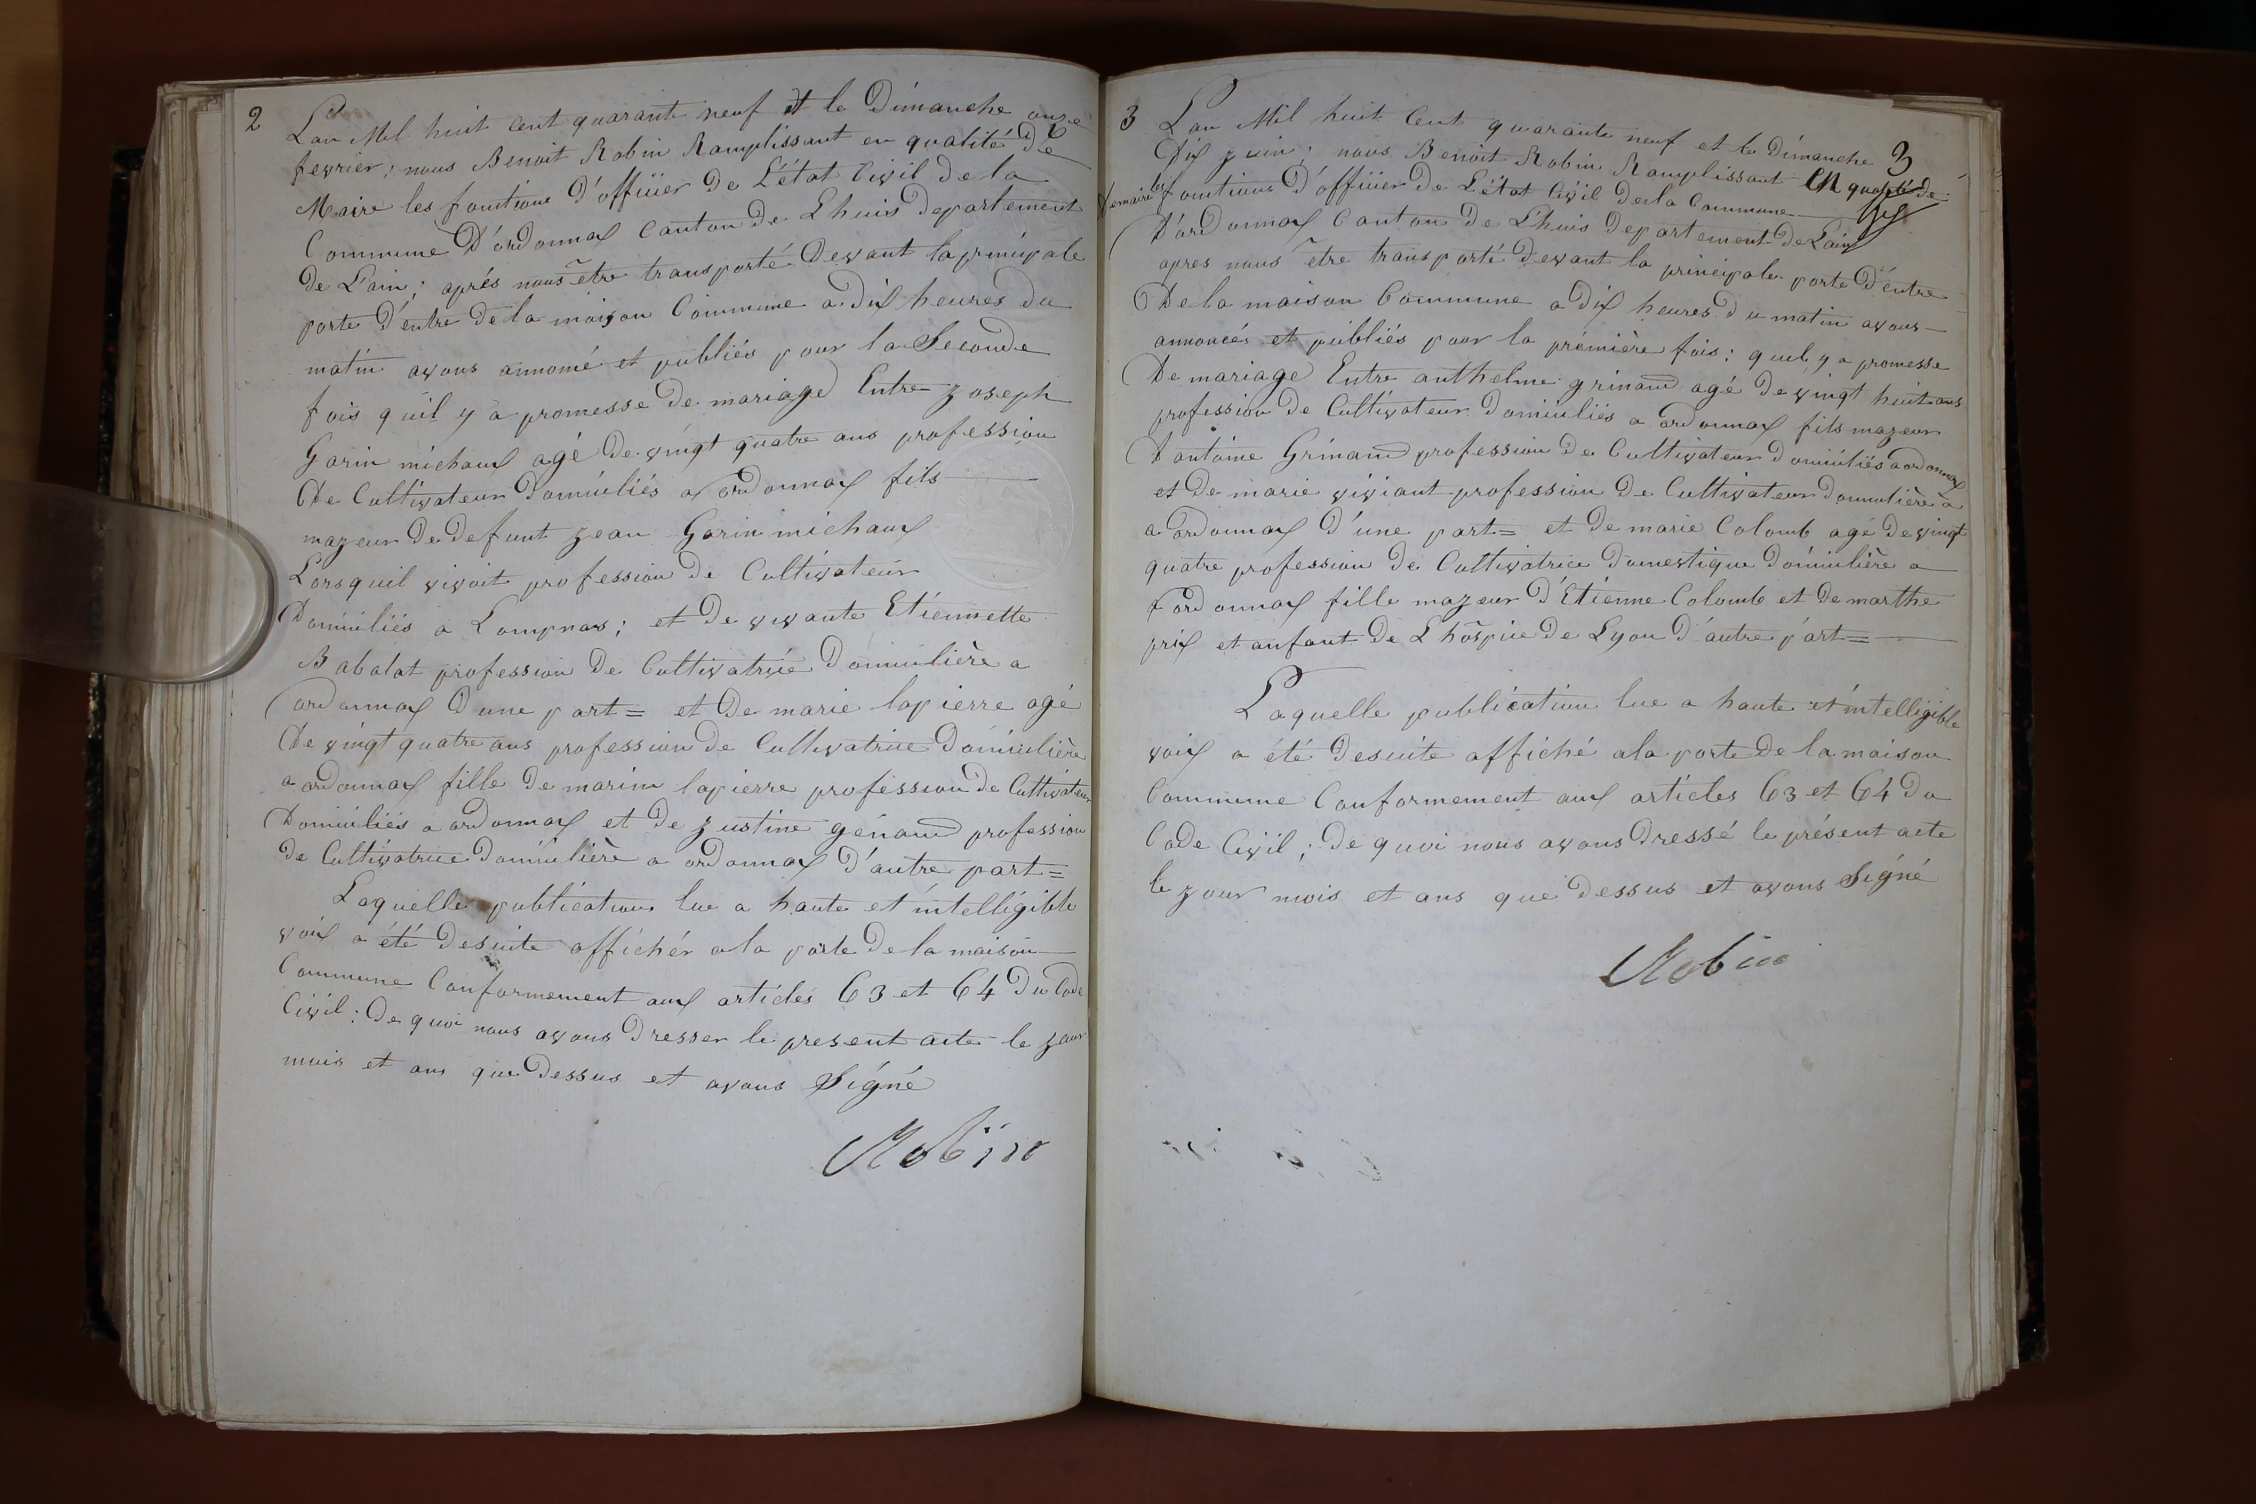 2
L'an Mil huit cent quarante neuf et le Dimanche onze
fevrier; nous Benoit Robin Ramplissant en qualité de
Maire les fonctions D'officier De L'état Civil de la
Commune D'ordonnax Canton de Lhuis Departement
De L'ain; aprés nous être transporté Devant la principale
porte D'entre De la maison Commune a Dix heures du
matin avons annoncé et publiés pour la Seconde
fois qu'il y a promesse De mariage Entre Joseph
Garin michaux agé De vingt quatre ans profession
De Cultivateur Domiciliés a ordonnax fils
majeur De Defunt Jean Garin michaux
Lorsquil vivoit profession De Cultivateur
Domiciliés a Lompnas; et De vivante Etiennette
Babalat profession De Cultivatrice Domicilière a
ordonnax D'une part = et De marie lapierre agé
De vingt quatre ans profession De Cultivatrice Domicilière
a ordonnax fille De marin lapierre profession De Cultivateur
Domiciliés a ordonnax et De Justine génaud profession
De Cultivatrice Domicilière a ordonnax D'autre part =
Laquelle publication lue a haute et intelligible
voix a été Desuite affichér a la porte De la maison
Commune Conformement aux articles 63 et 64 Du Code
Civil: De quoi nous avons Dresser le present acte le jour
mois et ans que Dessus et avons Signé
Robin
3
3
L'an Mil huit Cent quarante neuf et le Dimanche
Dix juin; nous Benoit Robin Ramplissant en qualité de
Demaire les fonctions D'officier De L'état Civil De la Commune
D'ordonnax Canton De Lhuis Departement De L'ain
apres nous être transporté Devant la principale porte D'entre
De la maison Commune a Dix heures du matin avons
annoncés et publiés pour la première fois: quil y a promesse
De mariage Entre anthelme grinand agé De vingt huit ans
profession De Cultivateur Domiciliés a ordonnax fils majeur
D'antoine Grinand profession De Cultivateur Domiciliés a ordonnax
et De marie viviant profession De Cultivateur Domicilière a
a ordonnax D'une part = et De marie Colomb agé De vingt
quatre profession De Cultivatrice Domestique Domicilière a
ordonnax fille majeur D'Etienne Colomb et De marthe
prix et anfant De L'hôspice De Lyon D'autre part =
Laquelle publication lue a haute et intelligible
voix a été Desuite affiché a la porte De la maison
Commune Conformement aux articles 63 et 64 Du
Code Civil; De quoi nous avons Dressé le présent acte
le jour mois et ans que Dessus et avons Signé
Robin